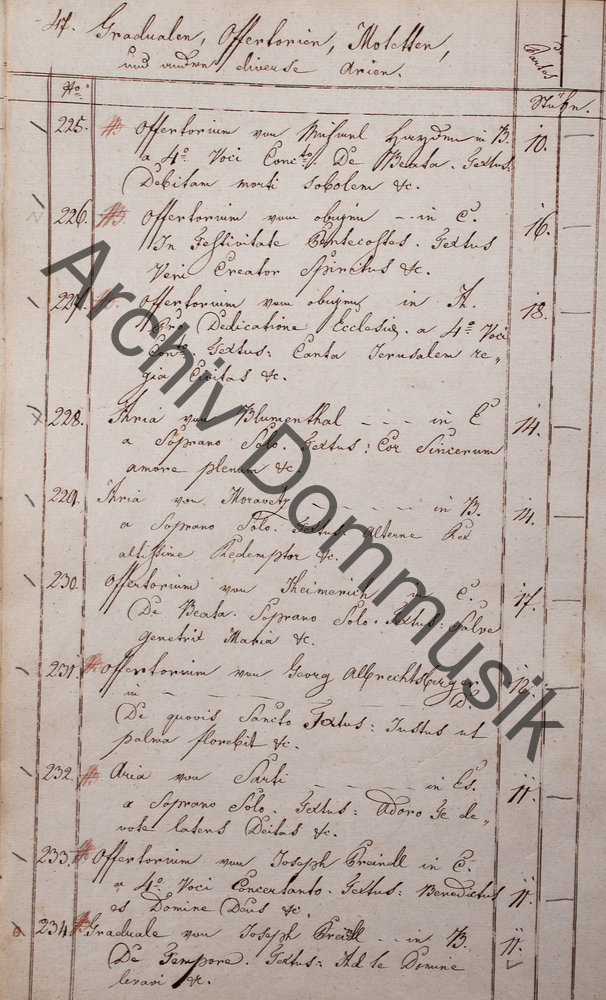 47. Gradualen, Offertorien, Motetten,
und andere diverse Arien.
Partes
No.
Stühn.
225. Offertorium von Michael Haydn in B. 10. —
a 4o Voci Concto. De Beata. Textus:
Debitam morti sobolem &c.
226. Offertorium vom obigen — in C. 16. —
In Festivitate Pentecostes. Textus
Veni Creator Spiritus &c.
227. Offertorium vom obigen in A. 18. —
Pro Dedicatione Ecclesie. a 4o Voci
Conto Textus: Canta Jerusalem re„
gia Civitas &c.
228. Aria von Blumenthal — — — in E 14. —
a Soprano Solo. Textus: Cor Sincerum
amore plenum &c.
229. Aria von Moravetz — — — — in B. 14. —
a Soprano Solo. Textus: Alterne Rex
altissime Redemptor &c.
230. Offertorium von Heimerich in C. 17. —
De Beata. Soprano Solo. Textus: Salve
Genetrix Maria &c.
231. Offertorium von Georg Albrechtsberger 12. —
in — — — — — — — — — D.
De quovis Sancto Textus: Justus ut
palma florebit &c.
232. Aria von Sarti — — — — in Es. 11. —
a Soprano Solo. Textus: Adoro Te de„
vote latens Deitas &c.
233. Offertorium von Joseph Preindl in C. 11. —
a 4o Voci Concertanto. Textus: Benedictus
es Domine Deus &c.
234. Graduale von Joseph Preindl — in B. 11. —
De Tempore. Textus: Ad te Domine
levavi &c.
Archiv Dommusik